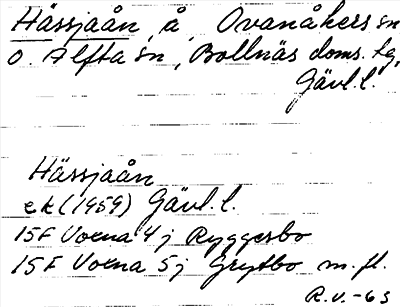 Hässjaån, å, Ovanåkers sn
o. Alfta sn, Bollnäs doms. tg,
Gävl. l.
Hässjaån
ek (1959) Gävl. l.
15F Voxna 4j Ryggesbo
15F Voxna 5j Grytbo m. fl.
R.V.-63